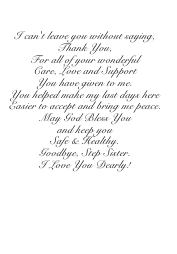 I can't leave you without saying,
Thank You,
For all of your wonderful
Care, Love and Support
You have given to me.
You helped make my last days here
Easier to accept and bring me peace.
May God Bless You
and keep you
Safe & Healthy.
Goodbye, Step Sister.
I Love You Dearly!